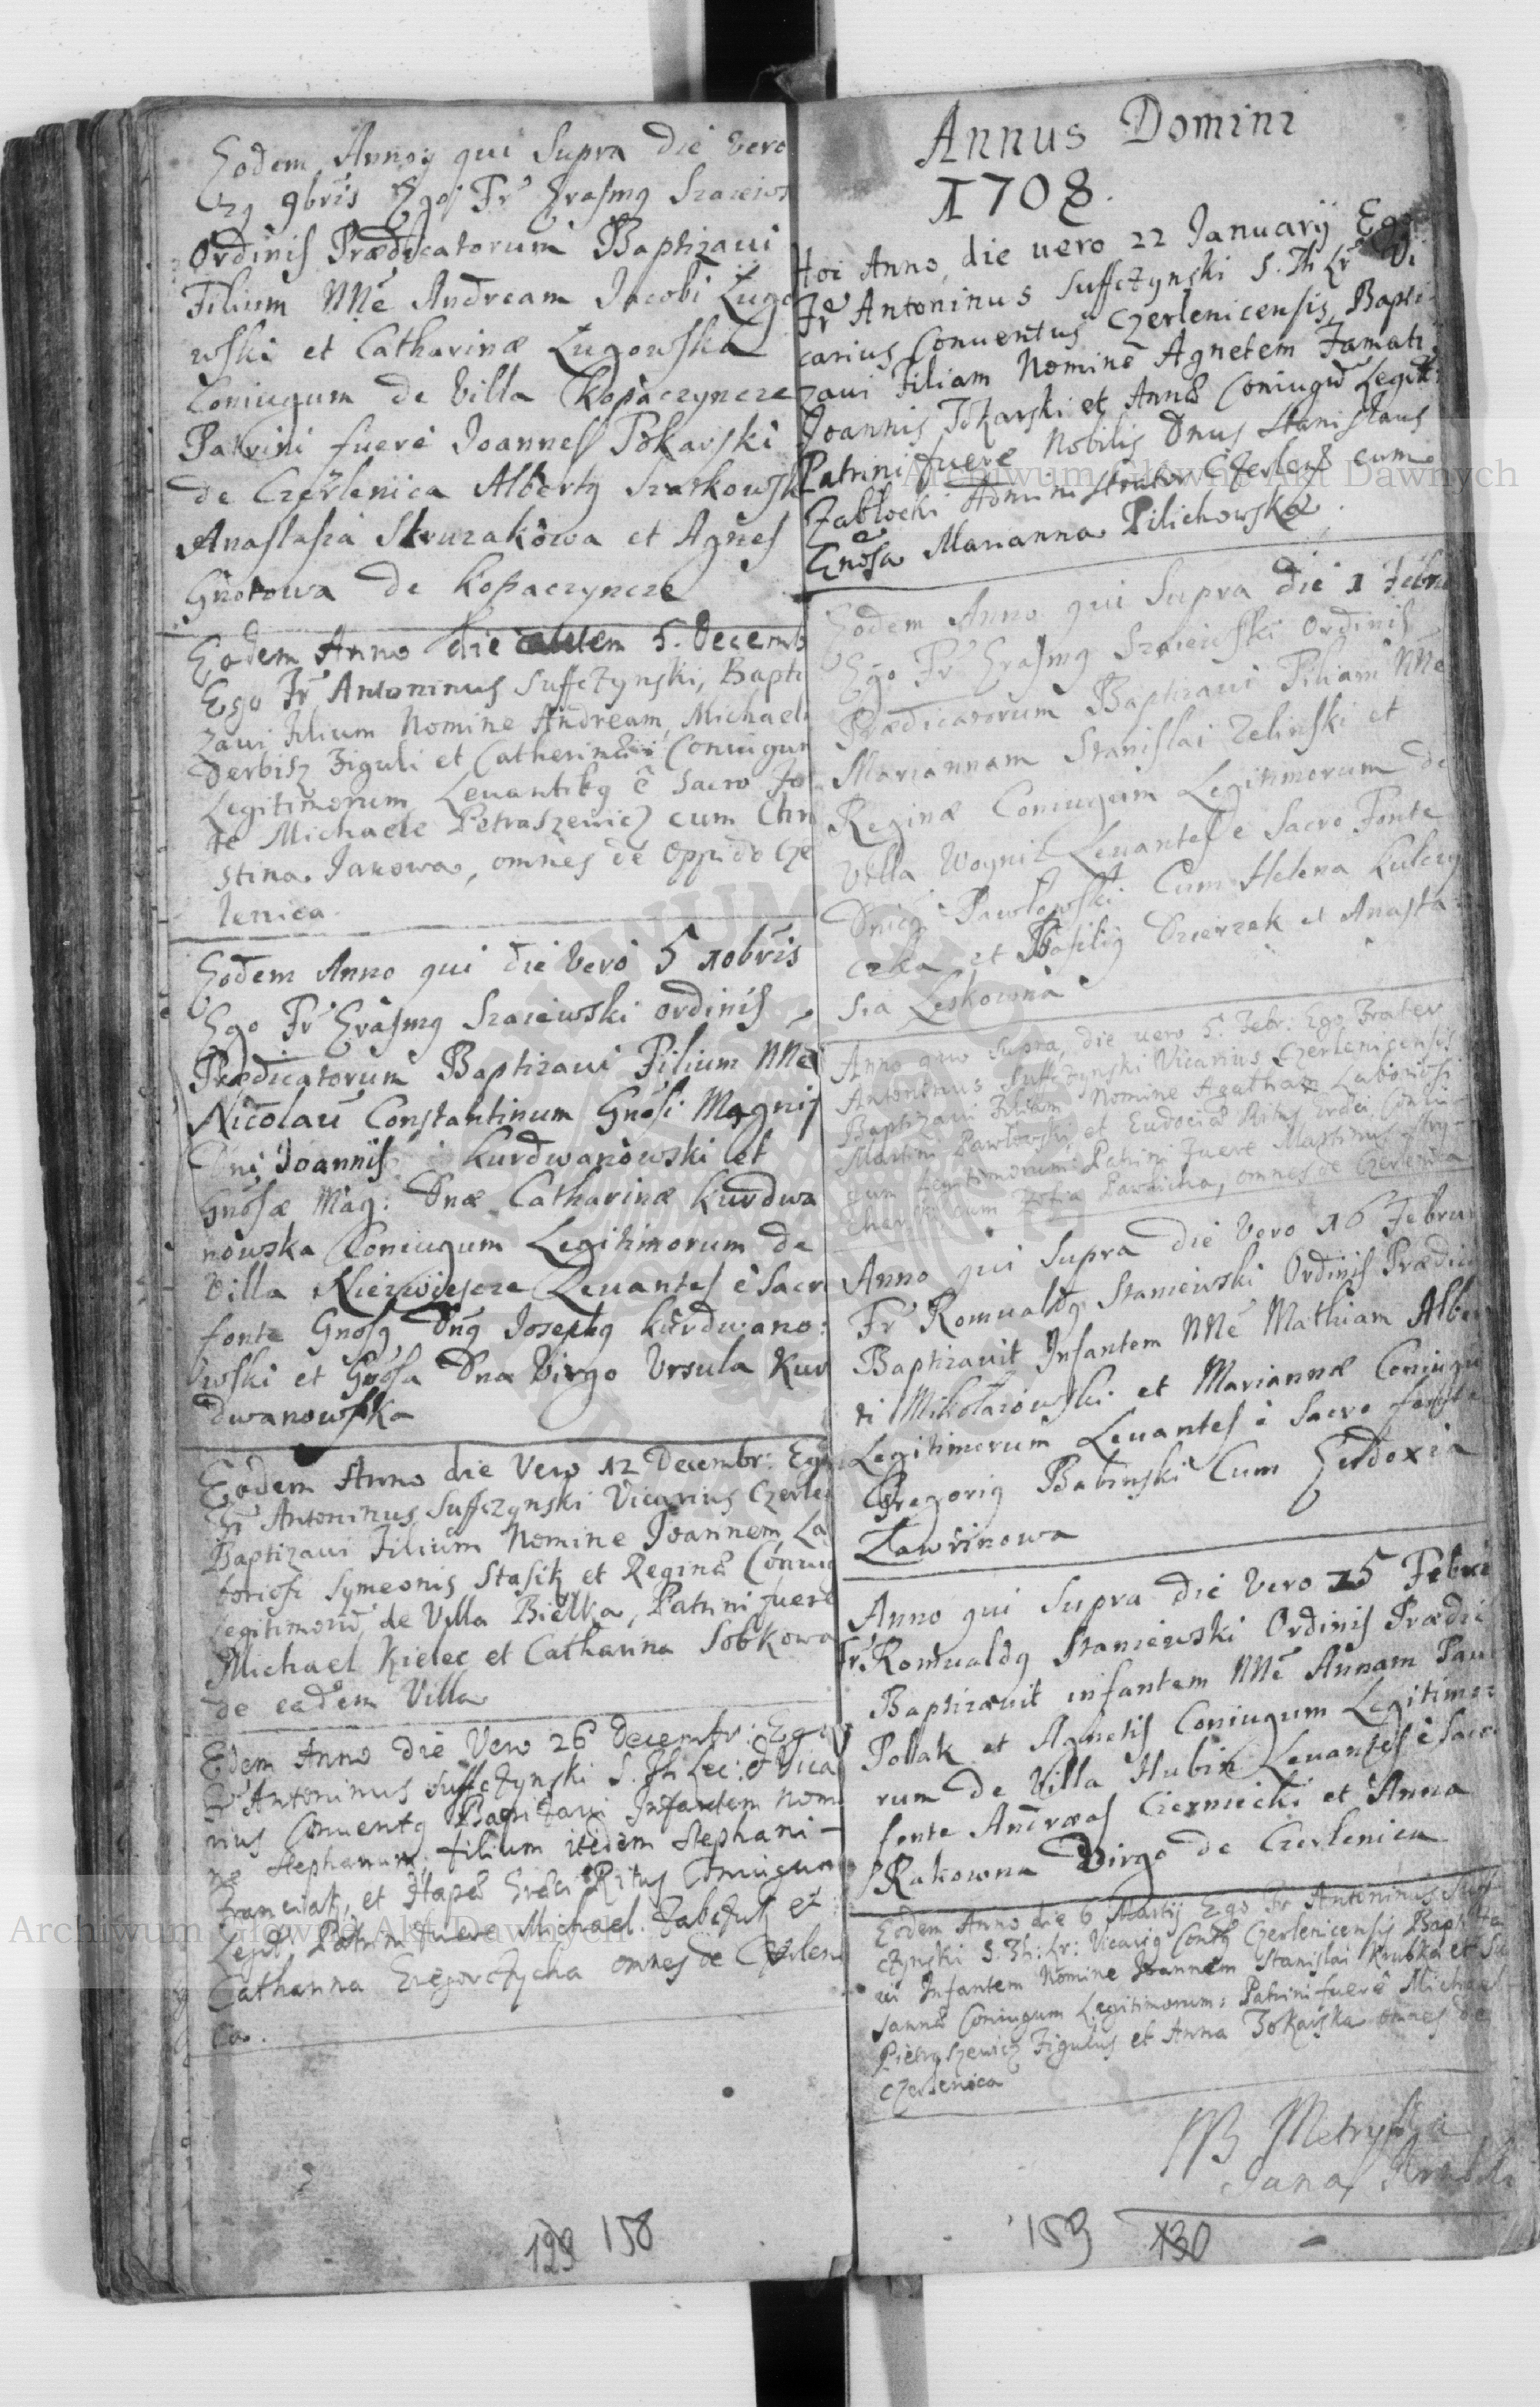 Eodem Anno qui Supra die vero
29 9bris Ego Fr Erasmg Szaiews
Ordinis Prædicatorum Baptizaui
Filium NNe Andream Jacobi Lugo
wski et Catharinæ Lugowska
Coniugum de Villa Kopaczyncze
Patrini fuere Joannes Tokarski
de Czerlenica Albertg Szarkowsk
Anastasia Skruzakowa et Agnes
Gnotowa de Kopaczyncze
Eodem Anno die autem 5. Decemb
Ego Fr Antoninus Suffczynski, Bapti
zaui Filium Nomine Andream, Michael
Derbisz Figuli et Catherinæ Coniugum
Legitimorum Leuantibg è Sacro Fo
te Michaele Petraszewicz cum Chri
stina Janowa, omnes de Oppido Cze
lenica.
Eodem Anno qui die Vero 5 10bris
Ego Fr Erasmg Szaiewski ordinis
Prædicatorum Baptizaui Filium NNe
Nicolau Constantinum Gnosi Magnif
Dni Joannis Kurdwanowski et
Gnosæ Mag: Dnæ Catharinæ Kurdwa
nowska Coniugum Legitimorum de
Villa Niezwiescze Leuantes è Sacr
fonte Gnosg Dng Josephg Kurdwano:
wski et Gnosa Dna Virgo Vrsula Kur
dwanowska
Eodem Anno die Vero 12 Decembr: Ego
Fr Antoninus Suffczynski Vicarius Czerle
Baptizaui Filium Nomine Joannem, La
boriosi Symeonis Stasik et Reginæ Coniug
legitimoru, de Villa Bielka, Patrini fuere
Michael Kielec et Catharina Sobkowa
de eadem Villa
Edem Anno die Vero 26 Decembr: Ego
Fr Antoninus Suffczynski S. Th Lec: & Vica
rius Conuentg Baptizaui Infantem Nomi
ne Stephanum, filium itidem Stephani
Franciak, et Hapæ Græci Ritus Coniugum
Legit, Patrini fuere Michael Jabczuk et
Catharina Gregorczycha omnes de Czerleni
ca.
129 158
Annus Domini
1708.
Hoi Anno, die uero 22 Januarij Ego
Fr Antoninus Suffczynski S. Th Lr Vi
carius Conuentus Czerlenicensis, Bapti
zaui Filiam Nomine Agnetem Famati
Joannis Tokarski et Annæ Coniugu Legit:
Patrini fuere Nobilis Dnus Stanislaus
Zabłocki Administrator Czerlen cum
Gnosa Marianna Pilichowska.
Eodem Anno qui Supra die 1 Febru
Ego Fr Erasmg Szaiewski Ordinis
Prædicatorum Baptizaui Filiam NNe
Mariannam Stanislai Zelinski et
Reginæ Coniugum Legitimorum de
Villa Woynil Leuantes è Sacro Fonte
Dnicg Pawlowski Cum Helena Kulczy
cka et Basilig Dzierzek et Anasta
sia Leskowna
Anno quo supra, die uero 5. Febr: Ego Frater
Antoninus Suffczynski Vicarius Czerlenicensis
Baptizaui Filiam Nomine Agatham Laboriosi
Martini Pawlowski, et Eudociæ Ritus Græci Coniu
gum Legitimorum: Patrini fuere Martinus
cum Zofia Pawlicha, omnes de Czerlenica
Anno qui Supra die Vero 16 Februa
Fr Romualdg Staniewski Ordinis Prædica
Baptizauit Infantem NNe Mathiam Alber
ti Mikołaiowski et Mariannæ Coniugu
Legitimorum Leuantes è Sacro fonte
Gregorig Babinski Cum Eudoxia
Ławrinowa
Anno qui Supra die Vero 25 Febru
Fr Romualdg Staniewski Ordinis Prædi
Baptizauit infantem NNe Annam Pau
Polak et Agnetis Coniugum Legitimo:
rum de Villa Hubin Leuantes è Sacr
fonte Andreas Czerniecki et Anna
Rakowna Virgo de Czerlenica
Eodem Anno die 6 Martij Ego Fr Antoninus Suff
czynski S. Th: Lr: Vicarig Contg Czerlenicensis Baptiza
ui Infantem Nomine Joannem Stanislai Krubka et Su
sannæ Coniugum Legitimorum: Patrini fuere Michael
Pietraszewicz Figulus et Anna Tokarska omnes de
Czerlenica
NB Metryka
Jana
159 130
Archiwum Główne Akt Dawnych
Archiwum Główne Akt Dawnych